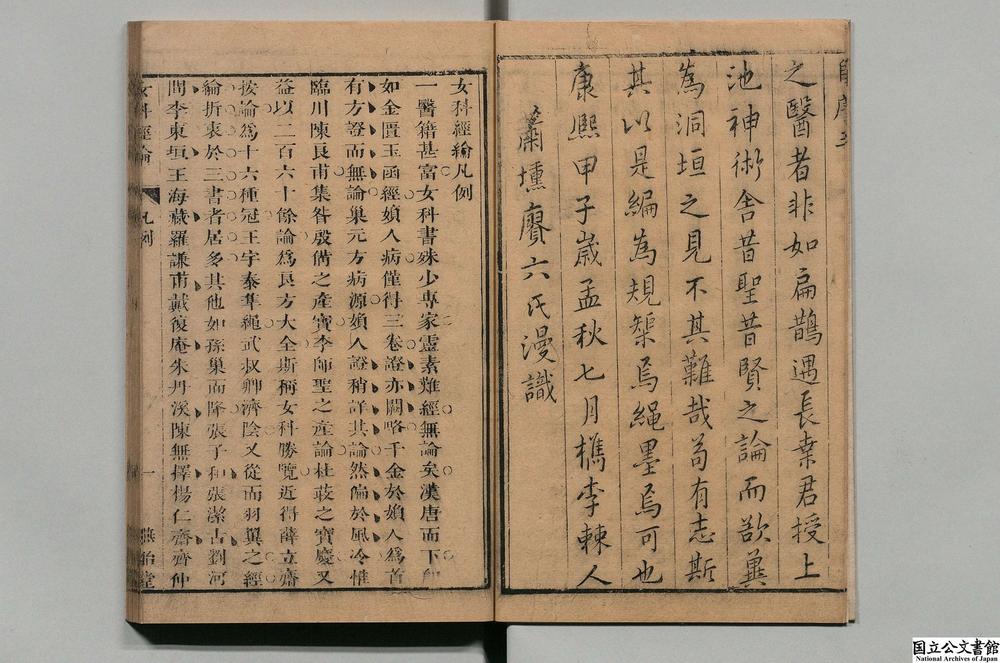 之醫者非如扁鵲遇長桑君授上
池神術舍昔聖昔賢之論而欲冀
為洞垣之見不其難哉苟有志斯
其以是編為規榘焉繩墨焉可也
康熙甲子歲孟秋七月檇李棘人
蕭壎賡六氏漫識
女科經綸凡例
一醫籍甚富女科書殊少專家靈素難經無論矣漢唐而下即
如金匱玉函經婦人病僅得三卷證亦闕略千金於婦人為首
有方證而無論巢元方病源婦人證稍詳其論然偏於風冷惟
臨川陳良甫集昝殷備之產寶李師聖之產論杜荍之寶慶又
益以二百六十餘論為良方大全斯稱女科勝覽近得薛立齋
按論為十六種冠王宇泰準繩武叔卿濟陰又從而羽翼之經
綸折衷於三書者居多其他如孫巢而降張子和張潔古劉河
間李東垣王海藏羅謙甫戴復庵朱丹溪陳無擇楊仁齋齊仲
女科經綸
凡例
一
國立公文書館
National Archives of Japan